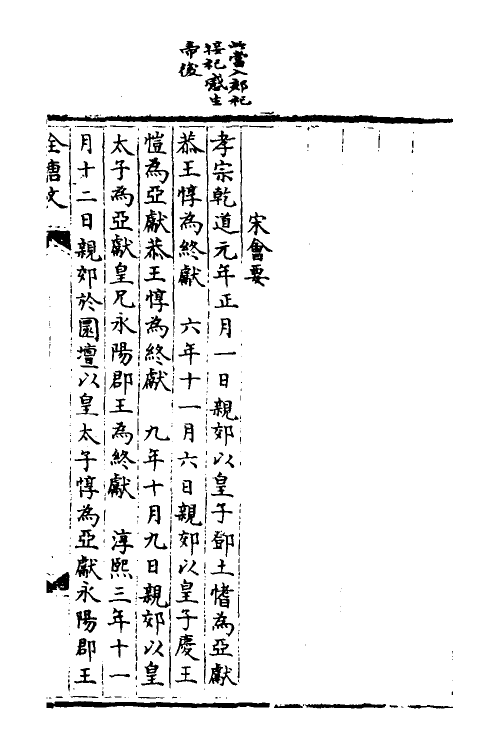 此當入郊祀
接祀感生
帝後
宋會要
孝宗乾道元年正月一日親郊以皇子鄧王愭為亞獻
恭王惇為終獻　六年十一月六日親郊以皇子慶王
愷為亞獻恭王惇為終獻　九年十月九日親郊以皇
太子為亞獻皇兄永陽郡王為終獻　淳熙三年十一
月十二日親郊於圜壇以皇太子惇為亞獻永陽郡王
全唐文